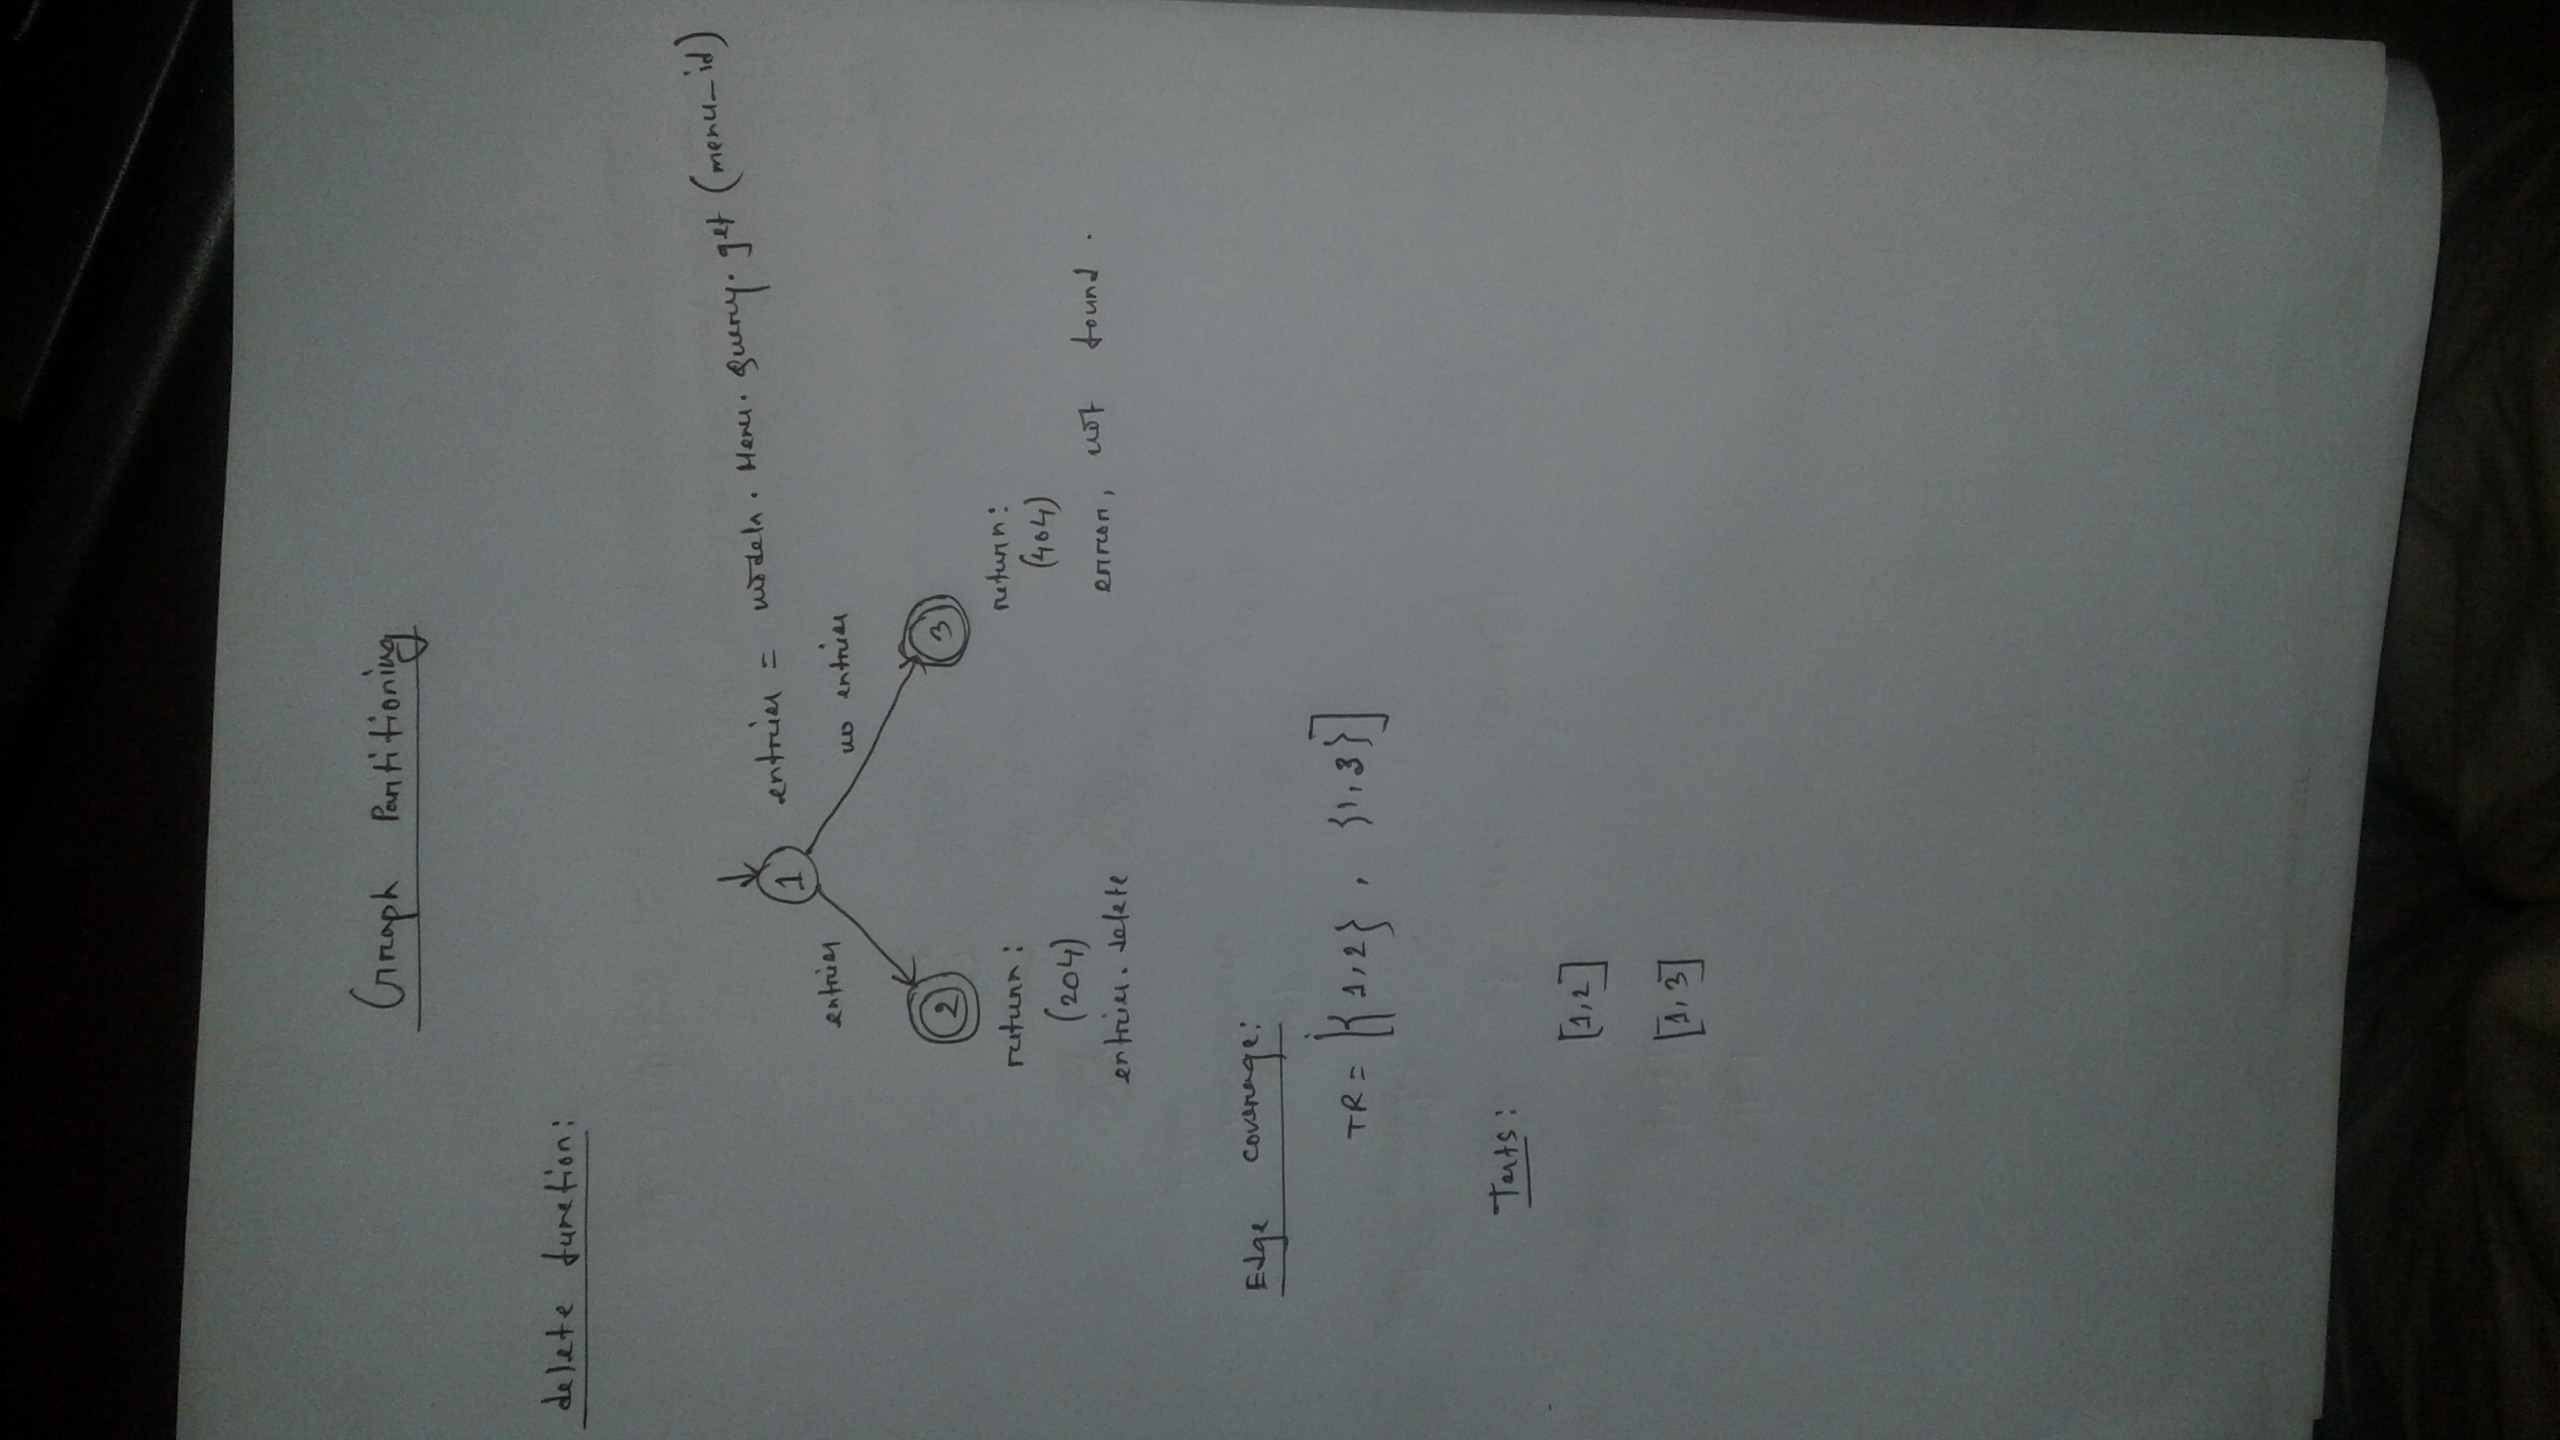 Graph Partitioning
delete function:
1 entries = models.Menu.query.get (menu_id)
entries no entries
2 3
return: return:
(204) (404)
entries.delete error, not found.
Edge coverage:
TR = [{1,2}, {1,3}]
Tests:
[1,2]
[1,3]